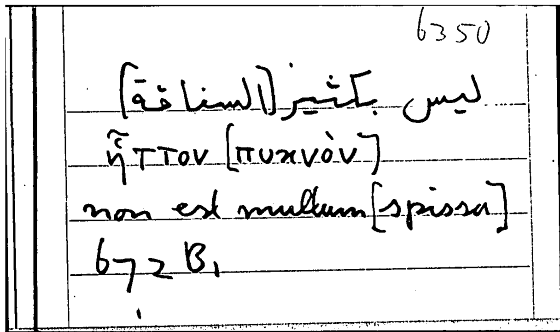 6350
ليس بكثير [السخافة]
ἧττον [πυκνὸν]
non est multum [spissa]
672 B₁